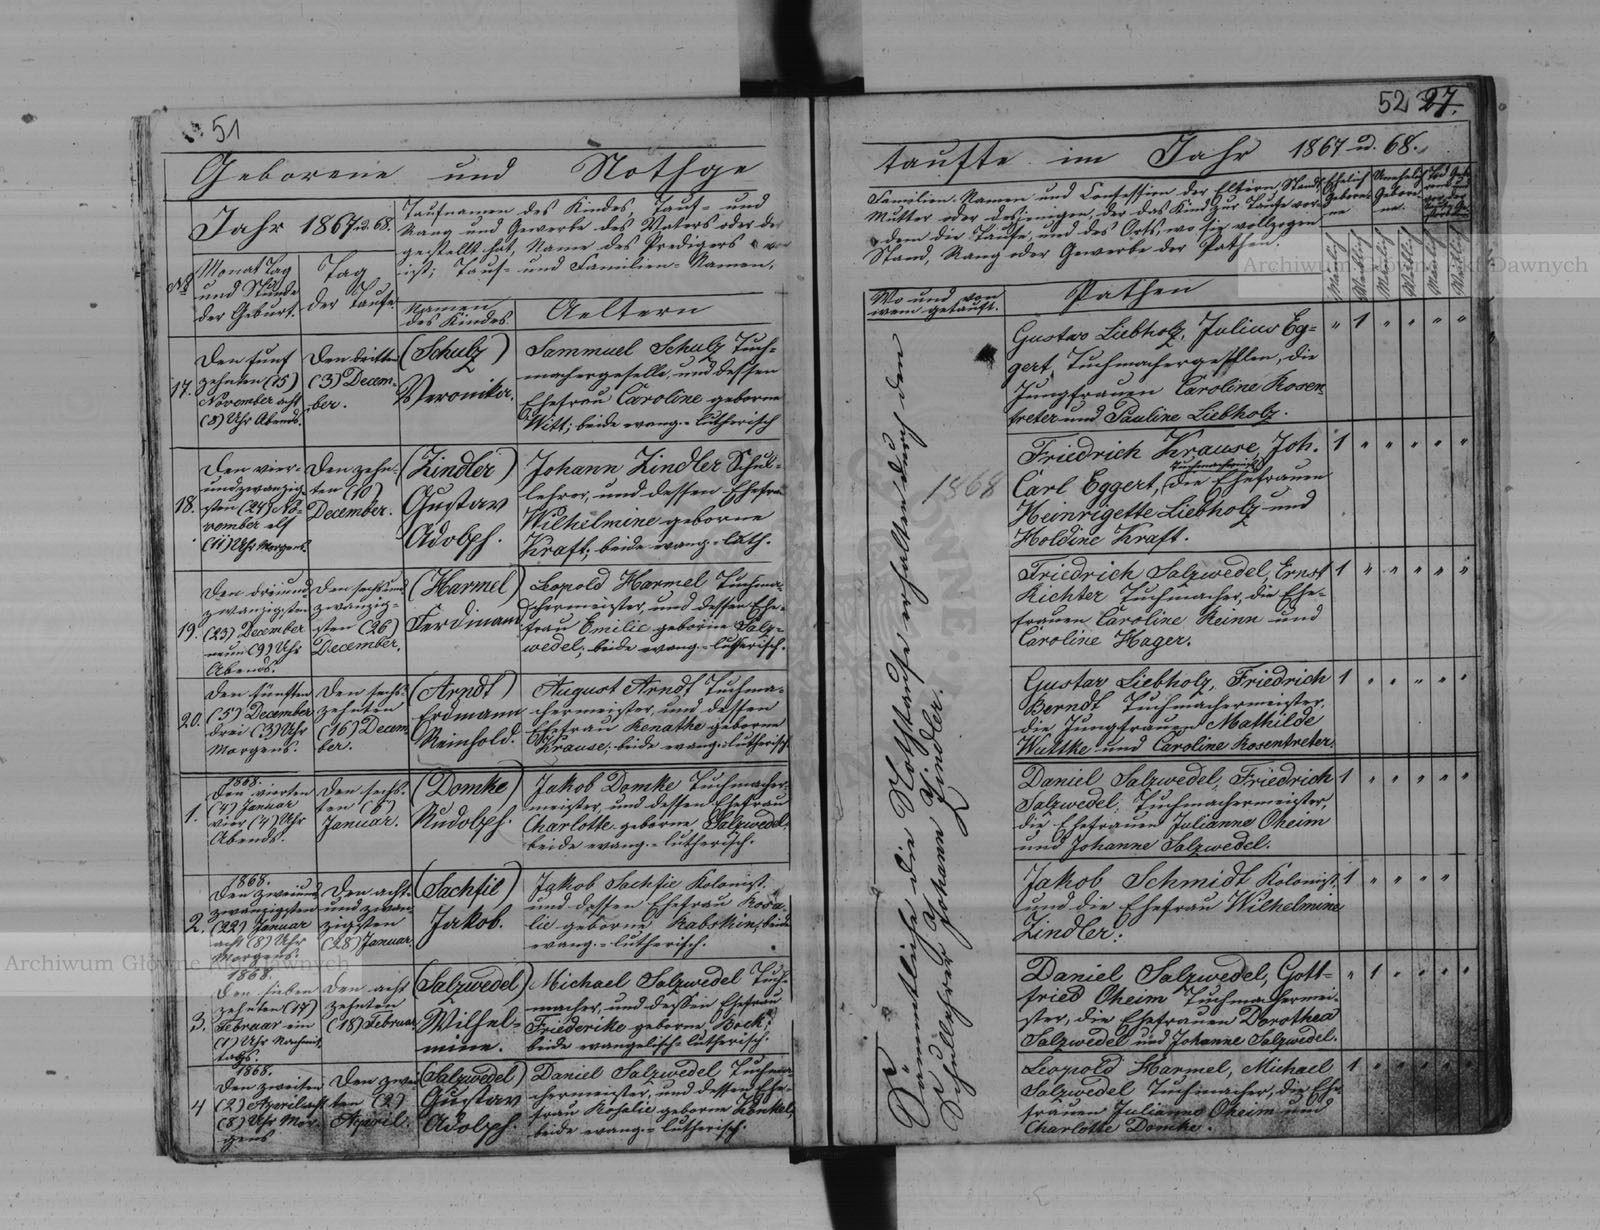 51
Geborene und Nothge
Jahr 1867 u. 68.
Taufnamen des Kindes Tauf- und
Rang und Gewerbe des Vaters oder der
gestellt hat, Name des Predigers
ist; Tauf- und Familien-Namen,
No
Monat Tag
und Stunde
der Geburt.
Tag
der Taufe.
Namen
des Kindes.
Aeltern
17.
Den fünf
zehnten (15)
November acht
(8) Uhr Abends.
Den dritten
(3) Decem-
ber.
(Schulz)
Veronika.
Sammuel Schulz Tuch-
machergeselle, und dessen
Ehefrau Caroline geborne
Witt; beide evang.-lutherisch
18.
Den vier-
undzwanzig-
sten (24) No-
vember elf
(11) Uhr Morgens.
Den zehn-
ten (10)
December.
(Zindler)
Gustav
Adolph.
Johann Zindler Schul-
lehrer, und dessen Ehefrau
Wilhelmine geborne
Kraft; beide evang.-luth.
19.
Den dreiund
zwanzigsten
(23) December
neun (9) Uhr
Abends.
Den sechsund
zwanzig-
sten (26)
December.
(Harmel)
Ferdinand
Leopold Harmel Tuchma-
chermeister, und dessen Ehe-
frau Emilie geborne Salz-
wedel; beide evang.-lutherisch.
20.
Den fünften
(5) December
drei (3) Uhr
Morgens.
Den sech-
zehnten
(16) Decem
ber.
(Arndt)
Erdmann
Reinhold.
August Arndt Tuchma-
chermeister, und dessen
Ehefrau Renathe geborne
Krause; beide evang.-lutherisch.
1.
1868.
Den vierten
(4) Januar
vier (4) Uhr
Abends.
Den sechs-
ten (6)
Januar.
(Domke)
Rudolph.
Jakob Domke Tuchmacher-
meister, und dessen Ehefrau
Charlotte geborne Salzwedel
beide evang.-lutherisch.
2.
1868.
Den zweiund
zwanzigsten
(22) Januar
acht (8) Uhr
Morgens.
Den acht-
und zwan-
zigsten
(28) Januar.
Jakob.
und dessen Ehefrau Rosa-
lie geborne
evang.-lutherisch.
3.
1868.
Den sieben
zehnten (17)
Februar ein
(1) Uhr Nachmit-
tags.
Den acht
zehnten
(18) Februar
(Salzwedel)
Wilhel-
mine.
Michael Salzwedel Tuch-
macher, und dessen Ehefrau
Friederike geborne Bock;
beide evangelisch-lutherisch.
4
1868.
Den zweiten
(2) April acht
(8) Uhr Mor-
gens
Den zwei
ten (2)
April.
(Salzwedel)
Gustav
Adolph.
Daniel Salzwedel Tuchma-
chermeister, und dessen Ehe-
frau Rosalie geborne Kunkel,
beide evang.-lutherisch.
52 27.
taufte im Jahr 1867 u. 68.
Familien-Namen und Confession der Eltern, Stand,
Mutter oder desjenigen, der das Kind zur Taufe vor-
dem die Taufe, und des Orts, wo sie vollzogen
Stand, Rang oder Gewerbe der Pathen.
Ehelich
Gebore-
ne
Unehelich
Gebore-
ne.
Wo und von
wem getauft.
Pathen
Männlich
Weiblich
Männlich
Weiblich
Männlich
Weiblich
Sämmtliche die Nothtaufe erhalten durch den
Schullehrer Johann Zindler.
Zindler.
1868
Gustav Liebholz, Julius Eg-
gert, Tuchmachergesellen, die
Jungfrauen Caroline Rosen-
treter und Pauline Liebholz.
" 1 " " " "
Friedrich Krause, Joh.
Carl Eggert, die Ehefrauen
Heinrigette Liebholz und
Holdine Kraft.
1 " " " " "
Friedrich Salzwedel, Ernst
Richter Tuchmacher, die Ehe-
frauen Caroline Keinn und
Caroline Hager.
1 " " " " "
Gustav Liebholz, Friedrich
Berndt Tuchmachermeister,
die Jungfrauen Mathilde
Wuttke und Caroline Rosentreter.
1 " " " " "
Daniel Salzwedel, Friedrich
Salzwedel, Tuchmachermeister,
die Ehefrauen Julianne Oheim
und Johanne Salzwedel.
1 " " " " "
Jakob Schmidt Kolonist,
und die Ehefrau Wilhelmine
Zindler.
1 " " " "
Daniel Salzwedel, Gott-
fried Oheim Tuchmachermei-
ster, die Ehefrauen Dorothea
Salzwedel und Johanne Salzwedel.
" 1 " " " "
Leopold Harmel, Michael
Salzwedel Tuchmacher, die Ehe
frauen Julianne Oheim und
Charlotte Domke.
1 " " " " "
Archiwum Główne Akt Dawnych
Archiwum Główne Akt Dawnych